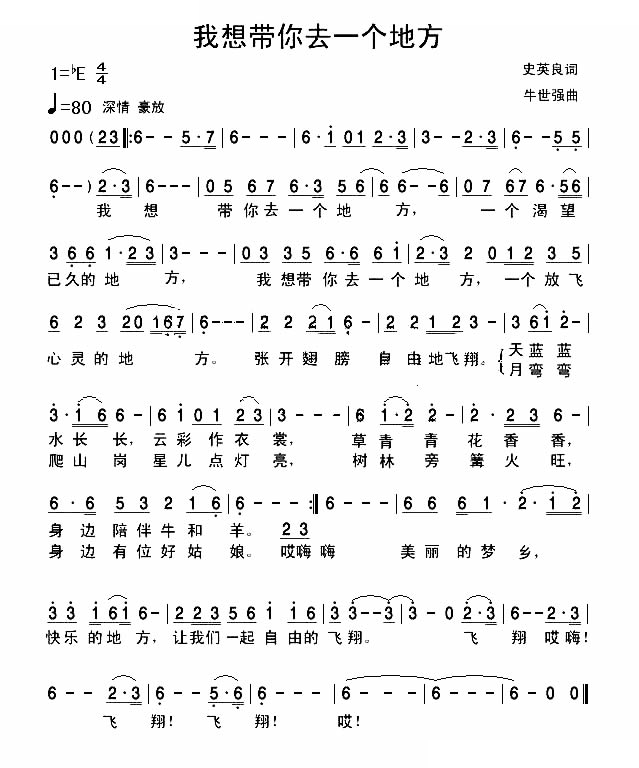 我想带你去一个地方
1=♭E 4/4
史英良词
♩=80 深情 豪放
牛世强曲
000(23|:6--5·7|6---|6·i 01 2·3|3---2·3|6--55|
6--)2·3|6---|05 67 6·3 56|66--6|07 67 6·56|
我 想 带你去一个地 方, 一个渴望
3 66 1·23|3---|03 35 6·6 6i|2·3 2 0123 5|
已久的 地 方, 我 想带 你去一个地 方, 一个放飞
6 2 3 20167|6----|2 2 2 21 6-|2 2 1 23-|3 6i 2-|
心灵的地 方。 张开翅膀 自由地飞翔。 天蓝蓝
月弯弯
3·i 6 6-|6i 01 23|3---|6 i·2 2-|2·323 6-|
水长 长, 云彩作衣 裳, 草青 青花香 香,
爬山 岗 星儿点灯 亮, 树林 旁篝火 旺,
6·6 53 2 16|6---:|6---|6 66 1·|2·i2|
身边陪伴牛和 羊。 23
身边有位好姑 娘。 哎嗨嗨 美丽的梦 乡,
33 i6i 6-|2235616i|3 3--3|3---|6--2·3|6--2·3|
快乐的地 方, 让我们一起自由的飞翔。 飞 翔哎嗨!
6--2·3|6--5·6|6---|6---|6---|6-00|
飞 翔! 飞 翔! 哎!